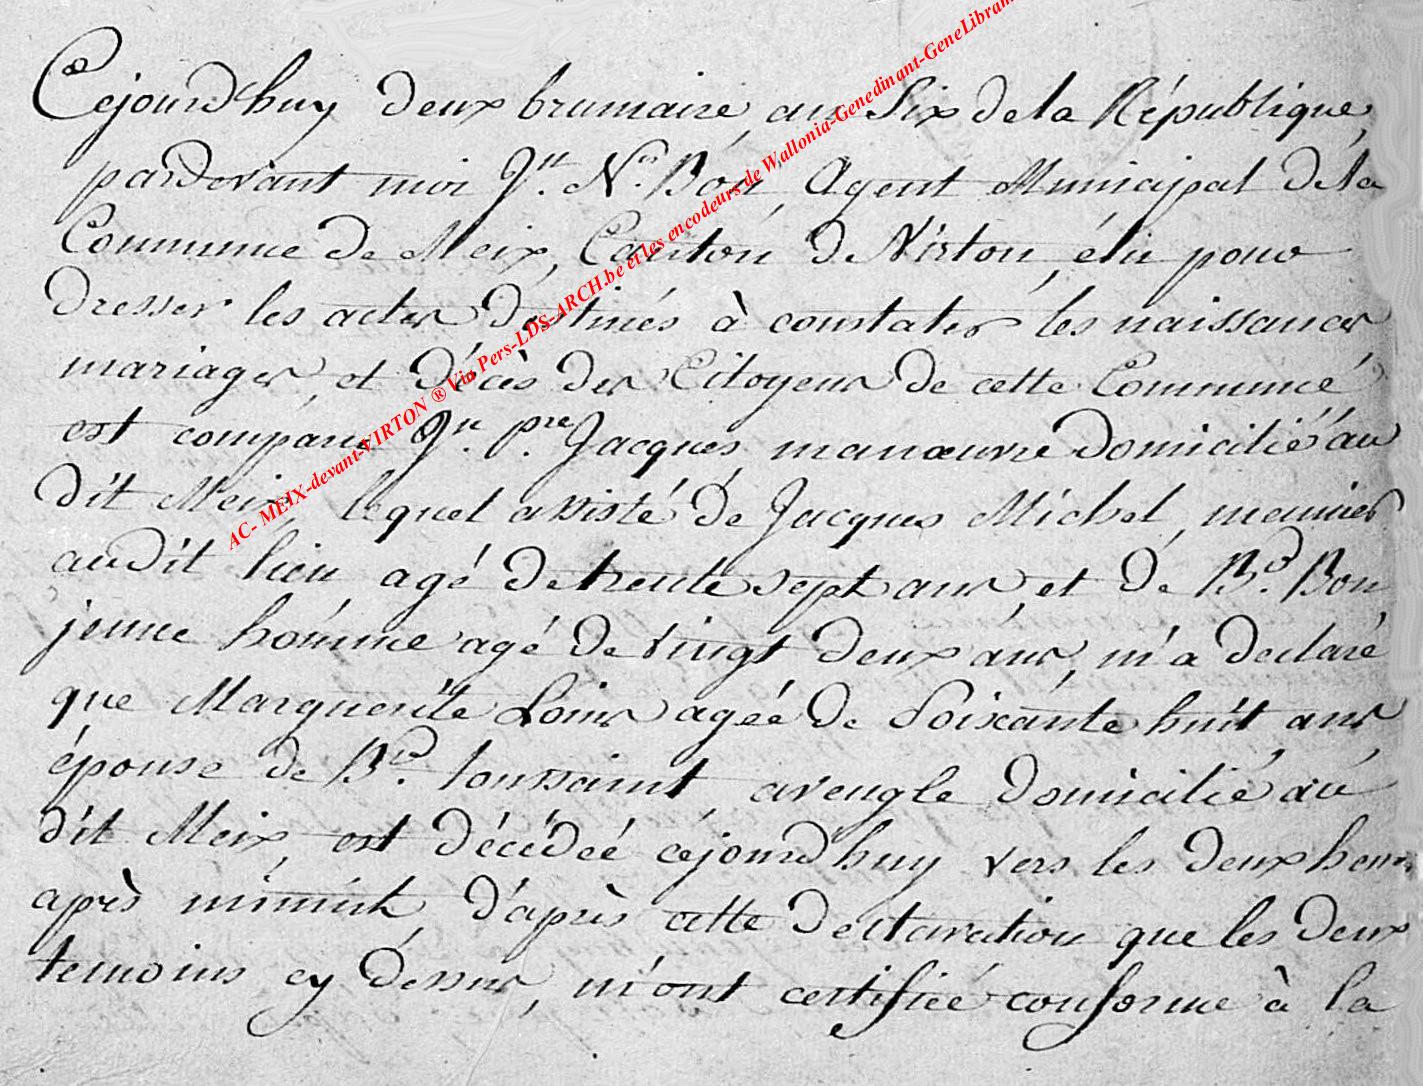 Cejourd'huy deux brumaire, an Six de la République,
pardevant moi Jn. Ns. Bon, Agent Municipal de la
Commune de Meix, Canton de Virton, élu pour
dresser les actes déstinés à constater les naissances
mariages, et décès des Citoyens de cette Commune
est comparu Jn. pre. Jacques, manœuvre domicilié au
dit Meix, lequel assisté de Jacques Michel,
audit lieu, agé de trente sept ans, et de Bd. Bon
jeune homme agé de vingt deux ans, m'a declaré
que Marguerite Louis agée de Soixante huit ans
épouse de Bd. toussaint, aveugle domicilié au
dit Meix, est décédée céjourd'huy vers les deux heures
après minuit, d'après cette declaration que les deux
temoins cy dessus, m'ont certifiée conforme à la
AC- MEIX-devant-VIRTON ® Via Pers-LDS-ARCH.be et les encodeurs de Wallonia-Genedinant-GeneLibram